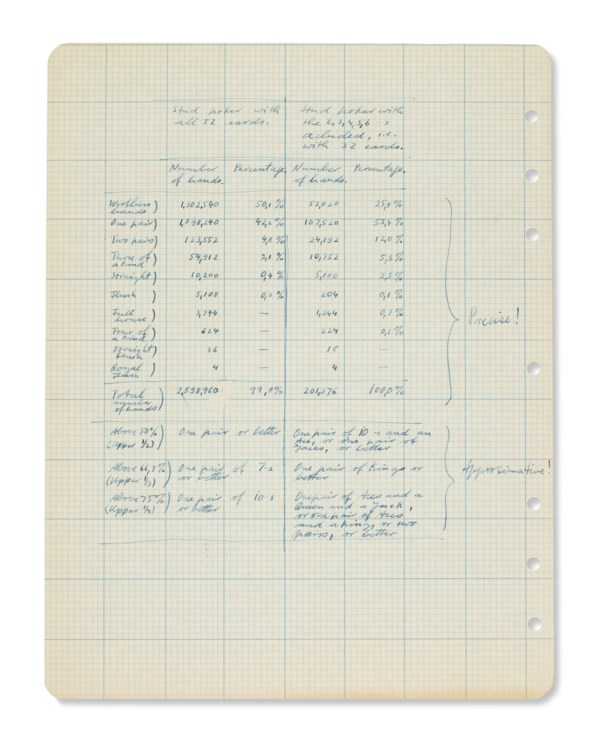 Stud poker with Stud poker with
all 52 cards. the 2,3,4,5,6-s
excluded, i.e.
with 32 cards.
Number Percentage. Number Percentage.
of hands. of hands.
Worthless) 1,302,540 50,1% 52,020 25,8%
hands
One pair) 1,098,240 42,2% 107,520 53,4%
Two pairs) 123,552 4,8% 24,192 12,0%
Three of) 54,912 2,1% 10,752 5,3%
a kind
Straight) 10,200 0,4% 5,100 2,5%
Flush ) 5,108 0,2% 204 0,1%
Full ) 3,744 — 1,344 0,7%
house
Four of) 624 — 224 0,1%
a kind
Straight) 36 —
flush
Royal ) 4 — 4 —
flush
Precise!
Total ) 2,598,960 99,8% 201,376 100,0%
number
of hands
Above 50%) One pair or better One pair of 10-s and an
(Upper 1/2) ace, or one pair of
Jacks, or better
Above 66,7%) One pair of 7-s One pair of Kings or
(Upper 1/3) or better better
Approximative!
Above 75%) One pair of 10-s One pair of aces and a
(Upper 1/4) or better Queen and a Jack,
or one pair of aces
and a King, or two
pairs, or better